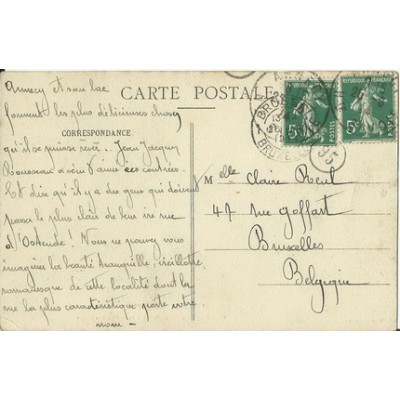 CARTE POSTALE
CORRESPONDANCE
Annecy et son lac
forment les plus délicieuses choses
qu'il se puisse rêvé. Jean Jacques
Rousseau a vécu & aimé ces contrées.
Et dire qu'il y a des gens qui doivent
passer le plus clair de leur vie rue
d'Ostende! Nous ne pouvez vous
imaginer la beauté tranquille, vieillotte,
romanesque de cette localité dont la
rue la plus caractéristique porte votre
nom _
Melle Claire
47 rue Goffart
Bruxelles
Belgique
5c
5c
POSTES